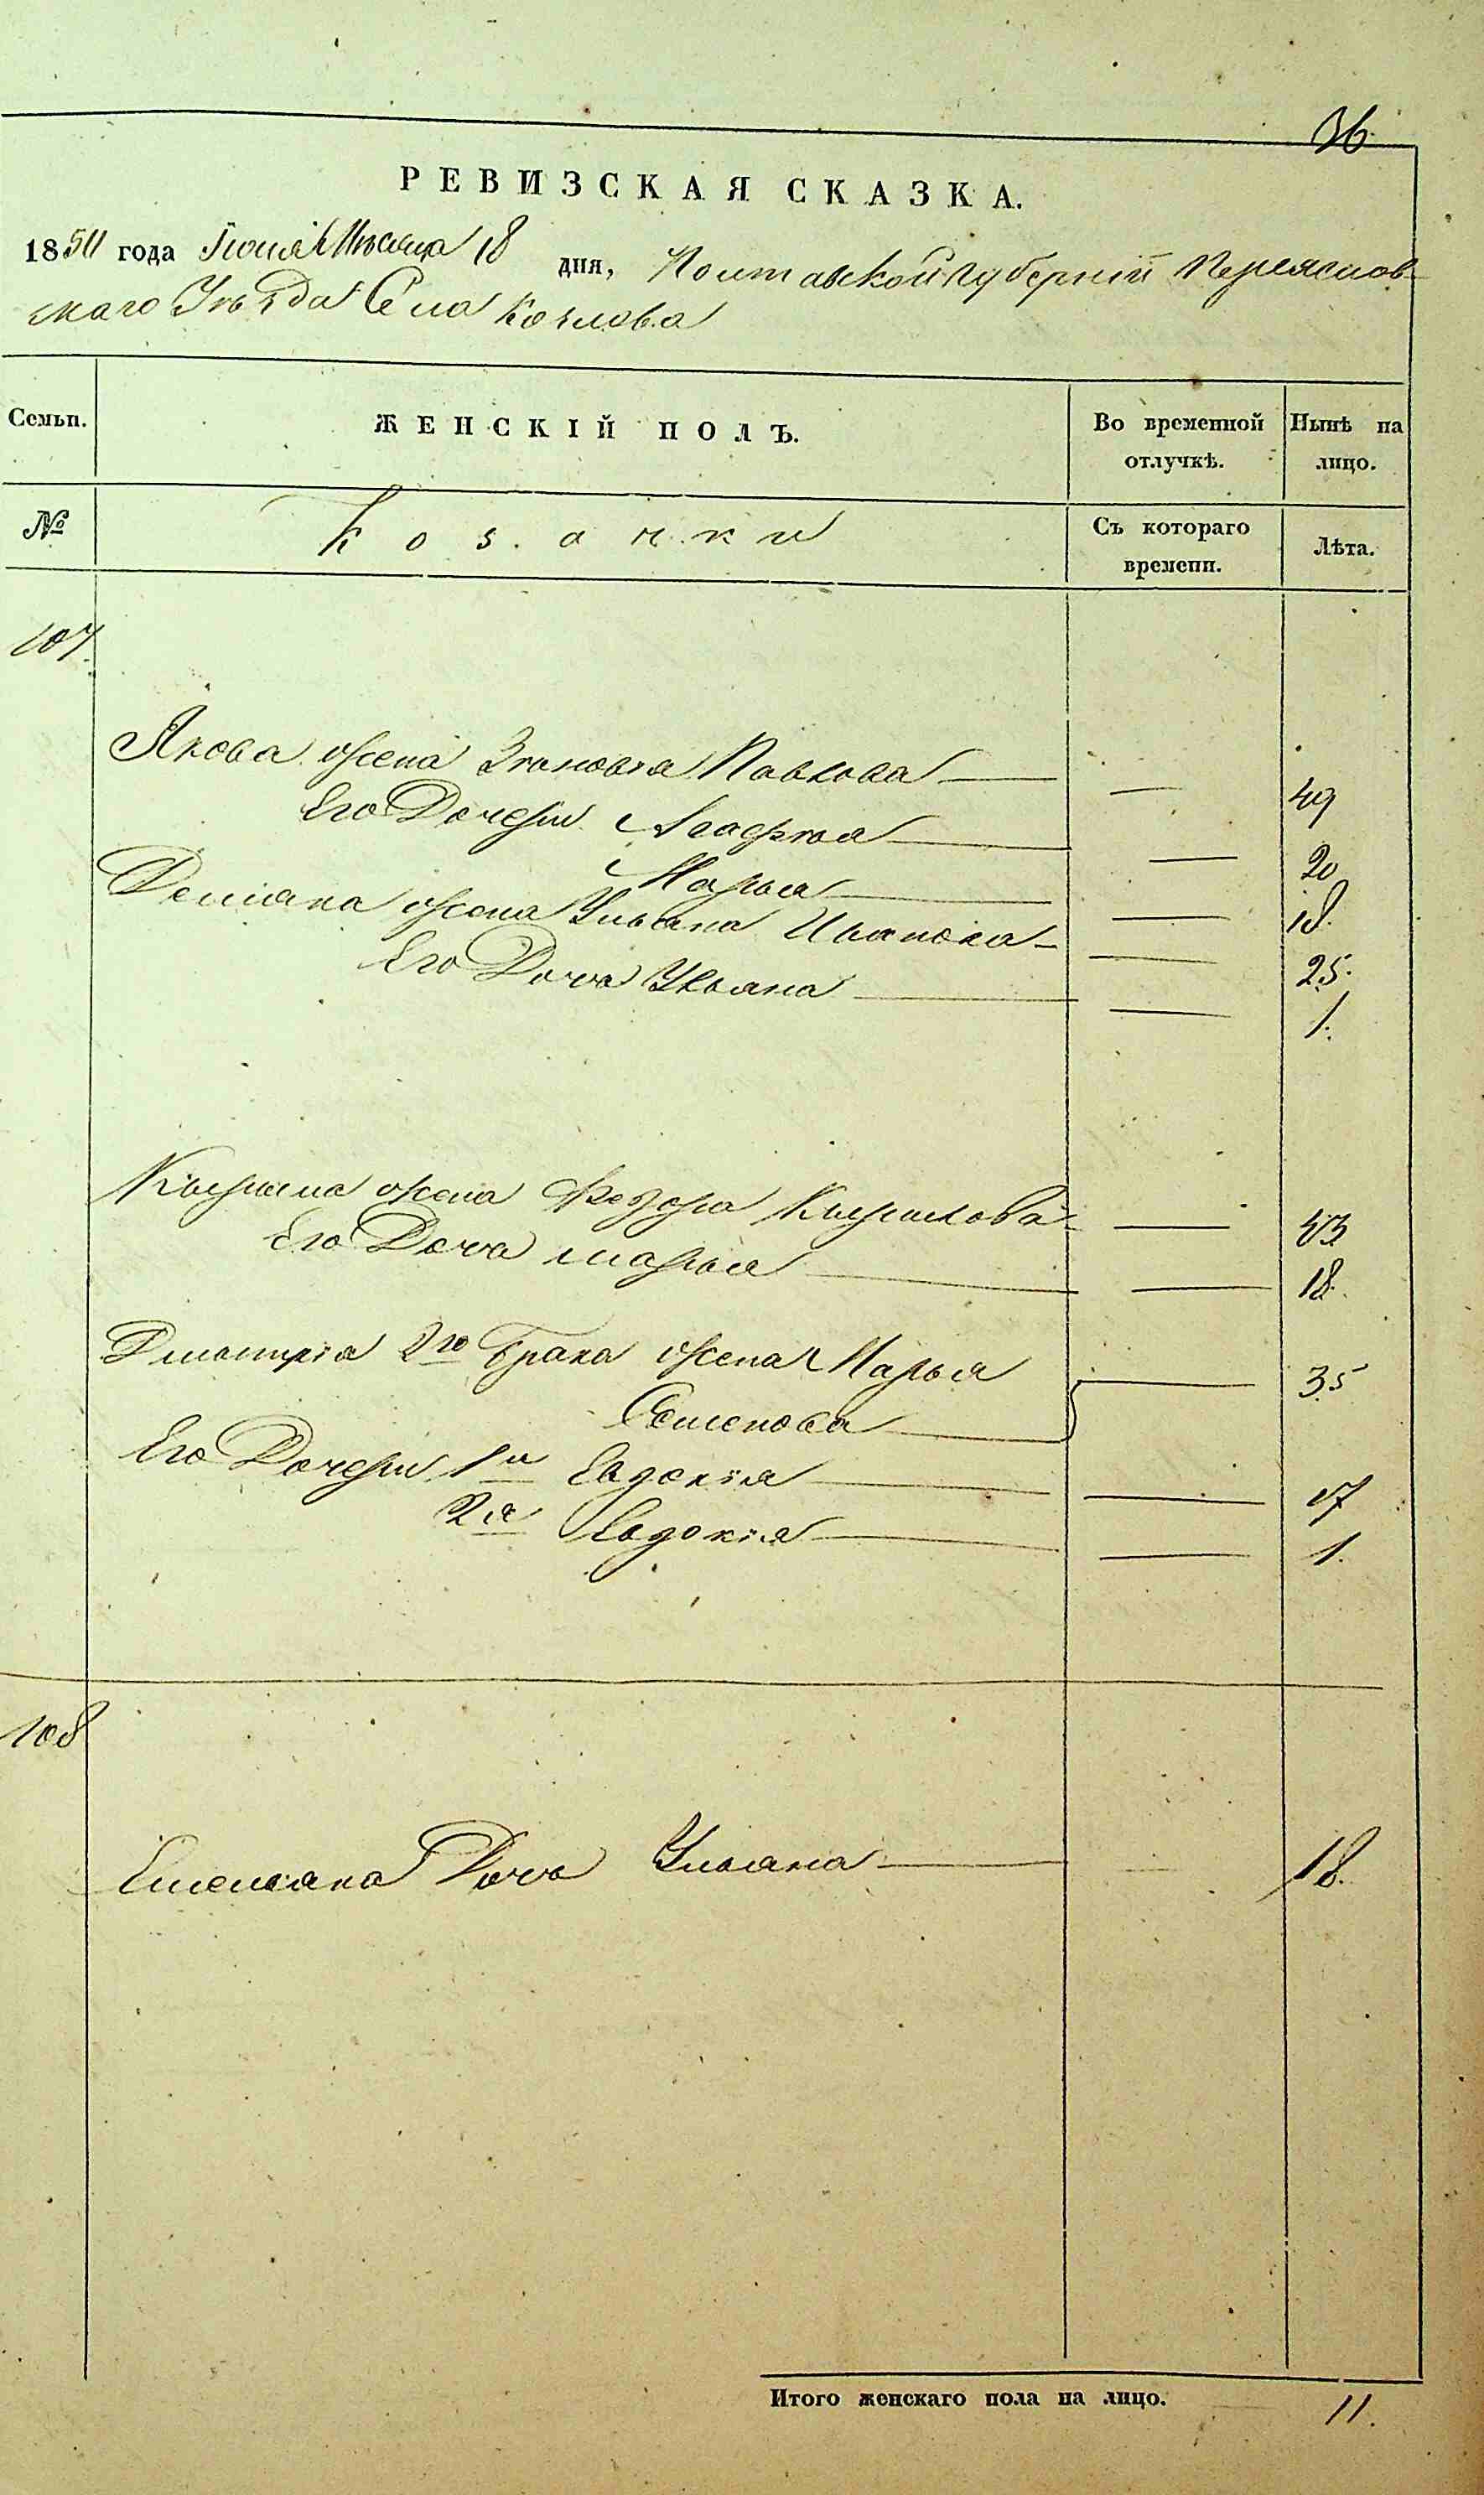 36.
РЕВИЗСКАЯ СКАЗКА.
1850 года Іюня Мѣсяца 18 дня, Полтавской Губерніи Переяслов-
скаго Уѣзда Села Козлова
Семьи.
ЖЕНСКІЙ ПОЛЪ.
Во временной отлучкѣ.
Нынѣ на лицо.
№
Козачки
Съ котораго времени.
Лѣта.
107.
Якова жена Зѣновія Павлова — — 49
Его Дочери Агафія — — 20
Марья — — 18.
Демяна жена Ульяна Иванова — — 25.
Его Дочь Ульяна — — 1.
Кирила жена Федора Кирилова — — 43
Его Дочь марья — — 18.
Дмитрія 2го брака жена Марья
Семенова — — 35
Его Дочери 1я Евдокія — — 17
2я Евдокія — — 1.
108
Емельяна Дочь Ульяна — — 18.
Итого женскаго пола на лицо. 11.